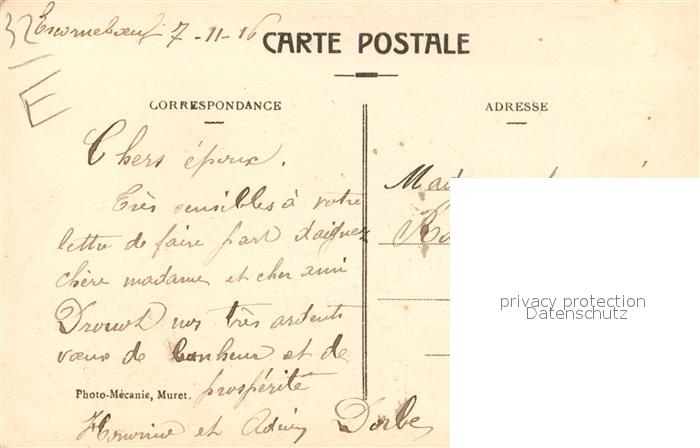 32
E
Escorneboeuf 7-11-16
CARTE POSTALE
CORRESPONDANCE
ADRESSE
Chers époux.
Très sensibles à votre
lettre de faire part daignez
chère madame et cher ami
Drouot nos très ardents
vœux de bonheur et de
prospérité
Photo-Mécanie, Muret.
et Dorbe
privacy protection
Datenschutz